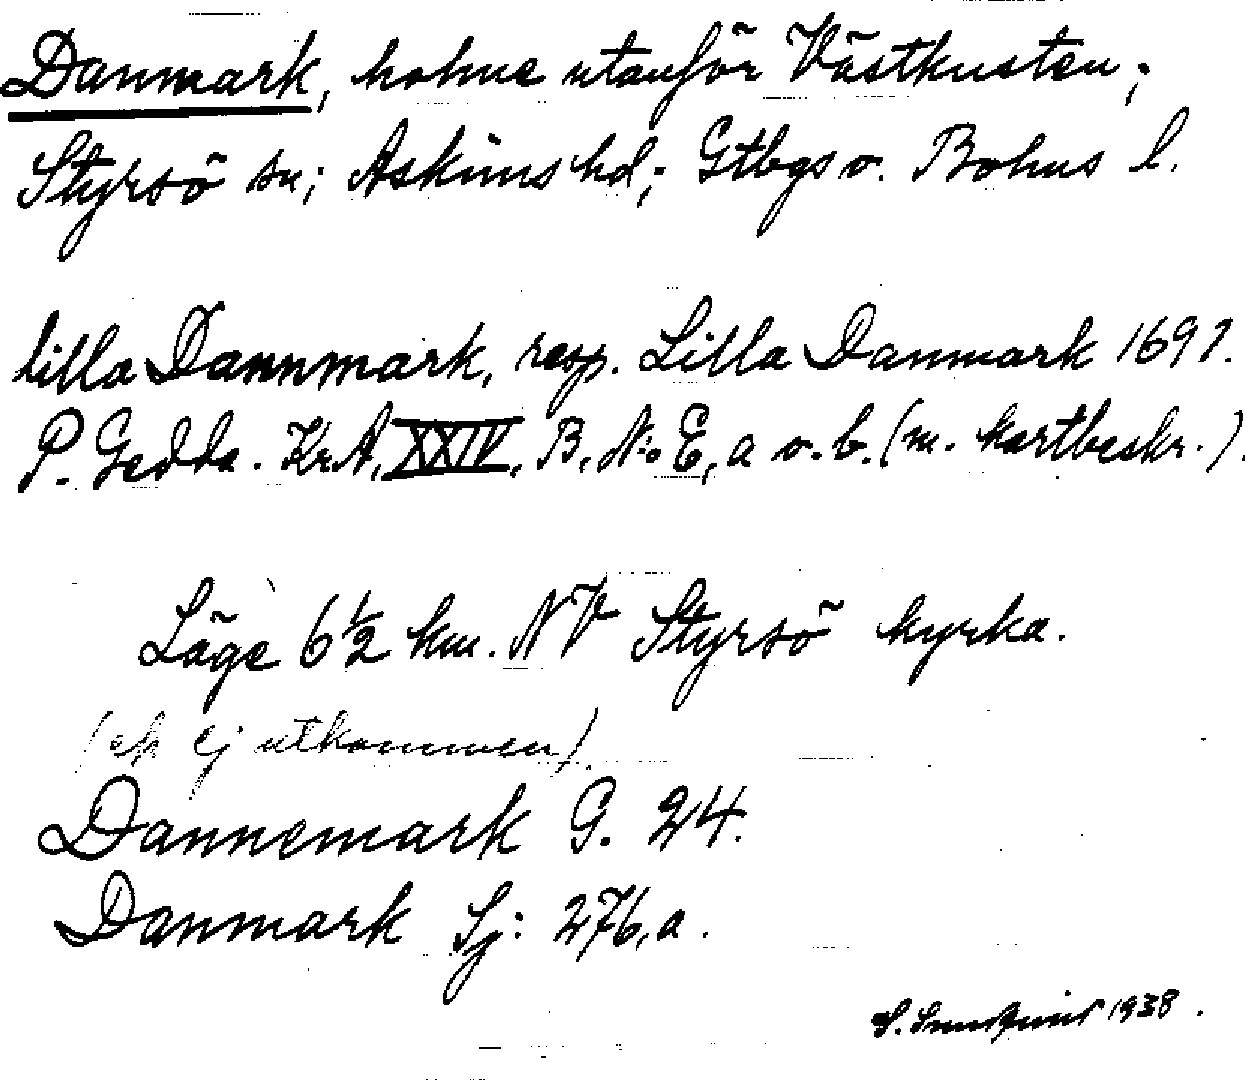 Danmark, holme utanför Västkusten;
Styrsö sn; Askims hd; Gtbgs o. Bohus l.
lilla Dannmark, resp. Lilla Danmark 1697.
P. Gedda. Kr.A, XXIV, B, N:o E, a o. b. (m. kartbeskr.).
Läge 6 1/2 km. NV Styrsö kyrka.
(ek ej utkommen).
Dannemark G. 24.
Danmark Sj: 276, a.
1938.